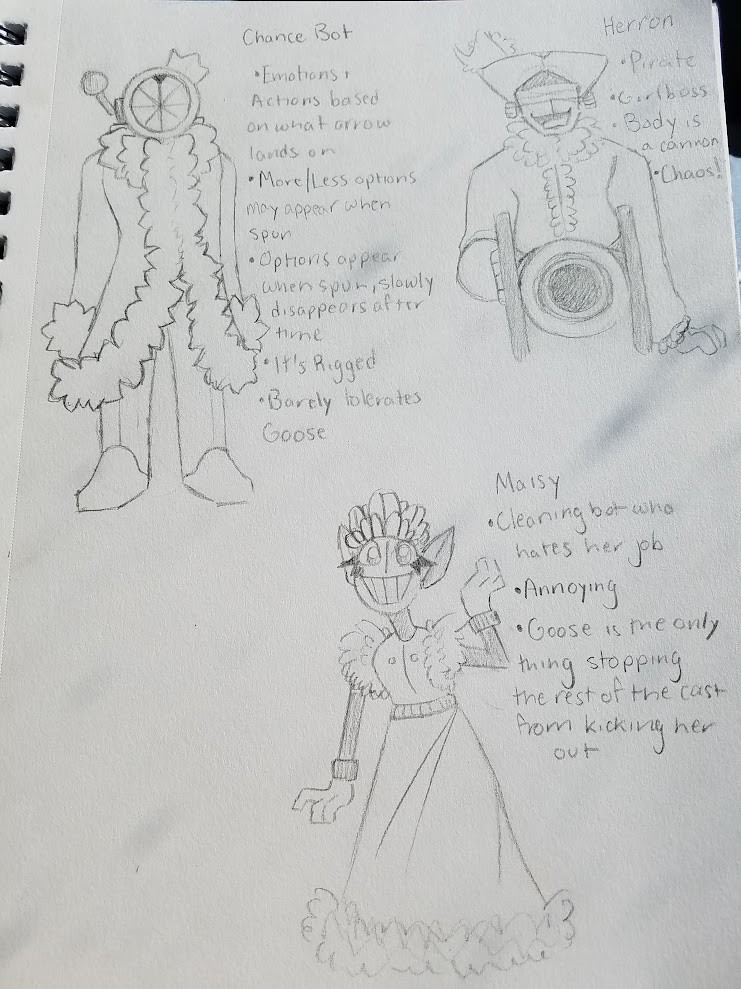 Chance Bot
•Emotions +
Actions based
on what arrow
lands on
•More/Less options
may appear when
spun
•Options appear
when spun, slowly
disappears after
time
•It's Rigged
•Barely tolerates
Goose
Herron
•Pirate
•Girlboss
•Body is
a cannon
•Chaos!
Maisy
•Cleaning bot who
hates her job
•Annoying
•Goose is the only
thing stopping
the rest of the cast
from kicking her
out